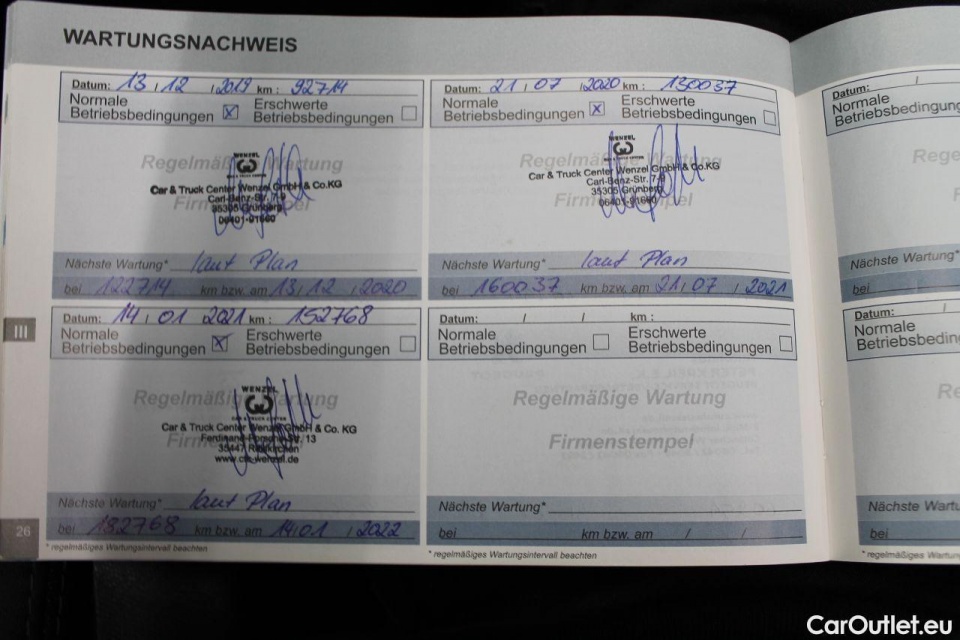 WARTUNGSNACHWEIS
Datum: 13 / 12 / 2019 km : 92714
Normale Betriebsbedingungen ☒ Erschwerte Betriebsbedingungen ☐
Regelmäßige Wartung
WENZEL
Car & Truck Center Wenzel GmbH & Co.KG
Carl-Benz-Str. 7-9
35305 Grünberg
06401-91660
Nächste Wartung* laut Plan
bei 122714 km bzw. am 13 / 12 / 2020
Datum: 21 / 07 / 2020 km : 130037
Normale Betriebsbedingungen ☒ Erschwerte Betriebsbedingungen ☐
Regelmäßige Wartung
WENZEL
Car & Truck Center Wenzel GmbH & Co.KG
Carl-Benz-Str. 7-9
35305 Grünberg
06401-91660
Firmenstempel
Nächste Wartung* laut Plan
bei 160037 km bzw. am 21 / 07 / 2021
III
Datum: 14 / 01 / 2021 km : 152768
Normale Betriebsbedingungen ☒ Erschwerte Betriebsbedingungen ☐
Regelmäßige Wartung
WENZEL
CAR & TRUCK CENTER
Car & Truck Center Wenzel GmbH & Co. KG
Ferdinand-Porsche-Str. 13
35447 Reiskirchen
www.ctc-wenzel.de
Nächste Wartung* laut Plan
bei 182768 km bzw. am 14 / 01 / 2022
* regelmäßiges Wartungsintervall beachten
Datum: / / km :
Normale Betriebsbedingungen ☐ Erschwerte Betriebsbedingungen ☐
Regelmäßige Wartung
Firmenstempel
Nächste Wartung*
bei km bzw. am / /
* regelmäßiges Wartungsintervall beachten
26
Datum: /
Normale
Betriebsbedingung
Rege
Nächste Wartung*
bei
Datum: /
Normale
Betriebsbedin
Re
Nächste Wart
bei
* regelmäßiges Wartung
CarOutlet.eu